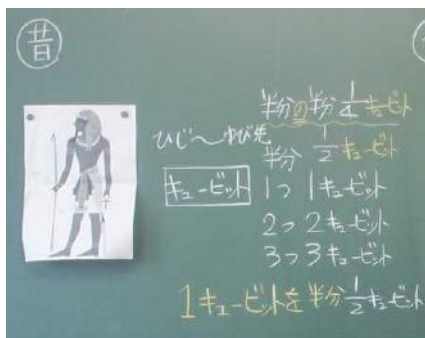 昔
半分の半分 1/4 キュービット
ひじ～ゆび先
半分 1/2 キュービット
キュービット
1つ 1キュービット
2つ 2キュービット
3つ 3キュービット
1キュービットを半分 1/2 キュービット